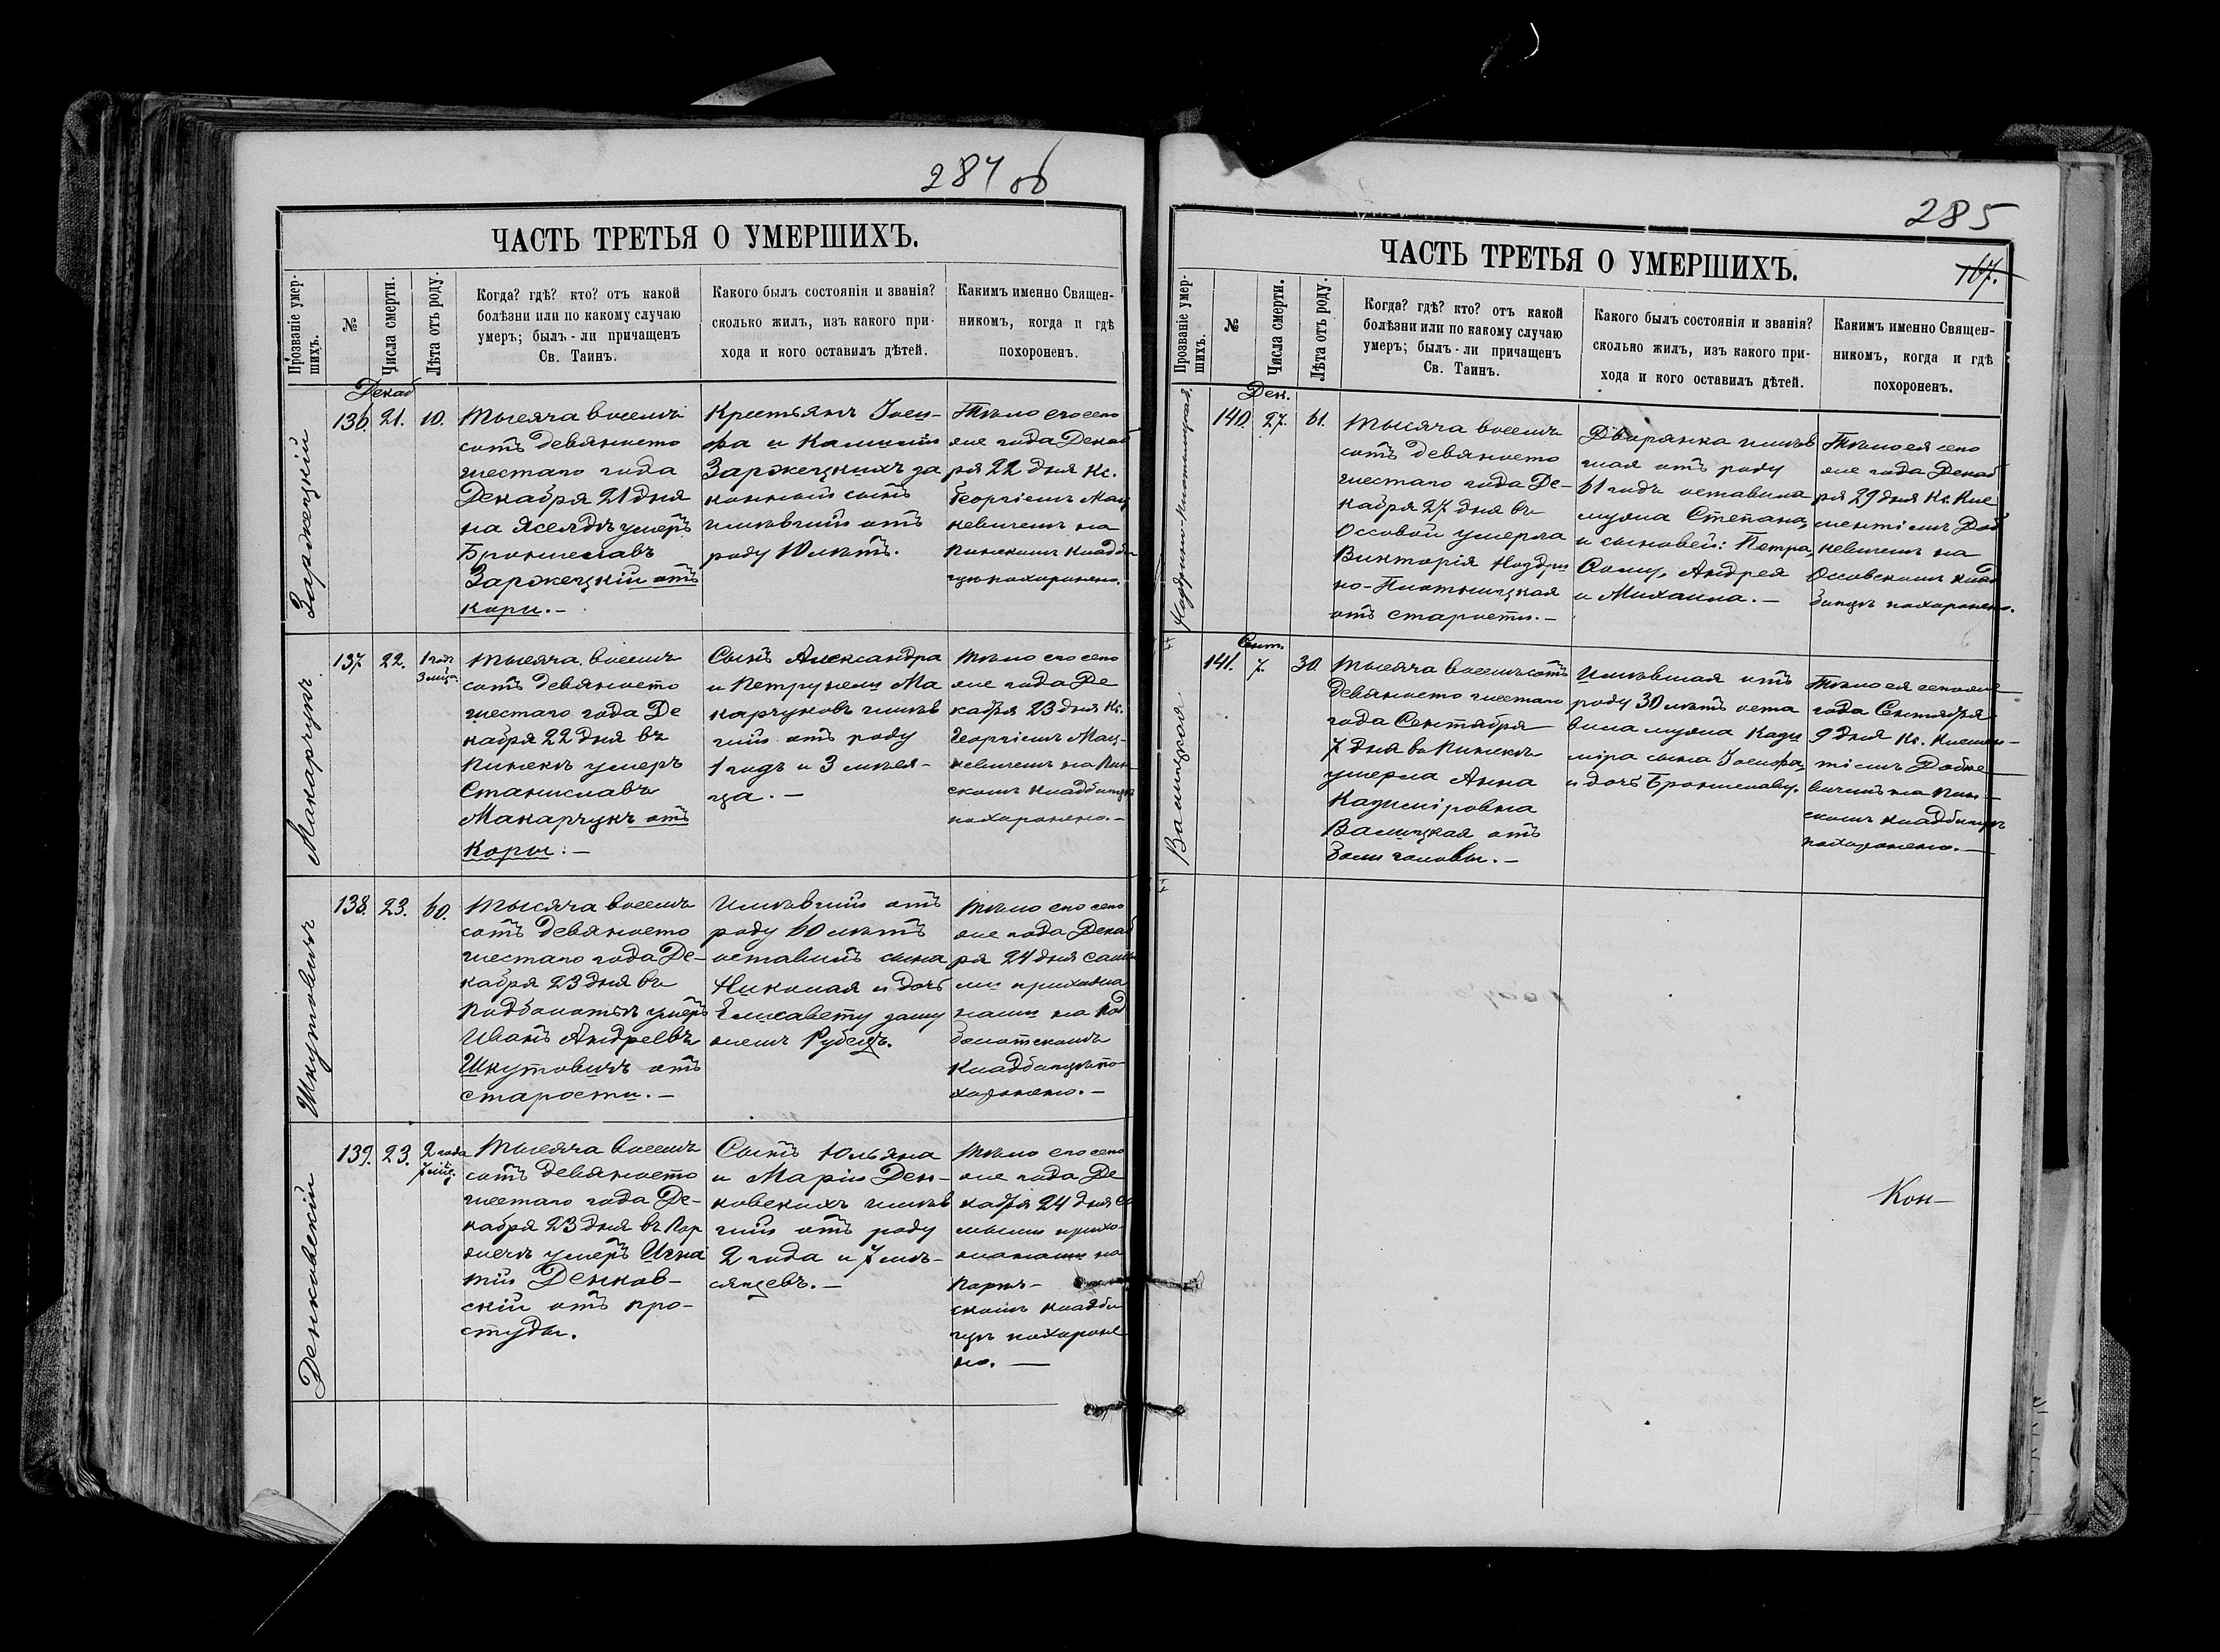 284 об
ЧАСТЬ ТРЕТЬЯ О УМЕРШИХЪ.
Прозваніе умер-
шихъ.
№
Числа смерти.
Лѣта отъ роду.
Когда? гдѣ? кто? отъ какой
болѣзни или по какому случаю
умеръ; былъ-ли причащенъ
Св. Таинъ.
Какого былъ состоянія и званія?
сколько жилъ, изъ какого при-
хода и кого оставилъ дѣтей.
Каким именно Священ-
никомъ, когда и гдѣ
похороненъ.
Декаб
Заржецкій
136.
21.
10.
Тысяча восемь
сотъ девяносто
шестаго года
Декабря 21 дня
на Ясельдѣ умеръ
Брониславъ
Заржецкій отъ
кори.—
Крестьянъ Іоси-
фа и
Заржецкихъ за
конный сынъ
имѣвшій отъ
роду 10 лѣтъ.
Тѣло его сего
же года Декаб
ря 22 дня Кс.
Георгіемъ Мац
кевичемъ на
Пинскомъ кладби
щѣ похоронено.
Макарчукъ
137
22.
1 годъ
3 мѣся.
Тысяча восемь
сотъ девяносто
шестаго года Де
кабря 22 дня въ
Пинскѣ умеръ
Станиславъ
Макарчукъ отъ
коры.—
Сынъ Александра
и Петрунели Ма
карчуковъ имѣв
шій отъ роду
1 годъ и 3 мѣся-
ца.—
Тѣло его сего
же года Де
кабря 23 дня Кс.
Георгіемъ Мац-
кевичемъ на Пин-
скомъ кладбищѣ
похоронено.—
Шкутовичъ
138.
23.
60.
Тысяча восемь
сотъ девяносто
шестаго года Де-
кабря 23 дня въ
Подболотьѣ умеръ
Иванъ Андреевъ
Шкутовичъ отъ
старости.—
Имѣвшій отъ
роду 60 лѣтъ
оставилъ сына
Николая и дочь
Елисавету заму
жемъ Рубецъ.
Тѣло его сего
же года Декаб
ря 24 дня самы
ми прихожа
нами на Под
болотскомъ
кладбищѣ по-
хоронено.—
Денковскій
139.
23.
2 года
7 мѣс.
Тысяча восемь
сотъ девяносто
шестаго года Де-
кабря 23 дня въ Пор
жечѣ умеръ Игна
тій Денков-
скій отъ про-
студы.
Сынъ Юльяна
и Маріи Ден-
ковскихъ имѣв
шій отъ роду
2 года и 7 мѣ-
сяцевъ.—
Тѣло его сего
же года Де
кабря 24 дня са
мыми прихо-
жанами на
скомъ кладби
щѣ похороне
но.—
285
167.
ЧАСТЬ ТРЕТЬЯ О УМЕРШИХЪ.
Прозваніе умер-
шихъ.
№
Числа смерти.
Лѣта отъ роду.
Когда? гдѣ? кто? отъ какой
болѣзни или по какому случаю
умеръ; былъ-ли причащенъ
Св. Таинъ.
Какого былъ состоянія и званія?
сколько жилъ, изъ какого при-
хода и кого оставилъ дѣтей.
Каким именно Священ-
никомъ, когда и гдѣ
похороненъ.
Дек.
140.
27.
61.
Тысяча восемь
сотъ девяносто
шестаго года Де-
кабря 27 дня въ
Оссовой умерла
Викторія Ноздри
но-Плотницкая
отъ старости.—
Дворянка имѣв
шая отъ роду
61 годъ оставила
мужа Степана,
и сыновей: Петра,
Адама, Андрея
и Михаила.—
Тѣло ея сего
же года Декаб
ря 29 дня Кс. Кле
ментіемъ Доб
кевичемъ на
Осовскомъ клад
бищѣ похоронено.
Сент.
Валицкая
141.
7.
30.
Тысяча восемьсотъ
девяносто шестаго
года Сентября
7 дня въ Пинскѣ
умерла Анна
Казиміровна
Валицкая отъ
боли головы.—
Имѣвшая отъ
роду 30 лѣтъ оста
вила мужа Кази
міра сына Іосифа,
и дочь Брониславу.
Тѣло ея сего же
года Сентября
9 дня Кс. Клемен-
тіемъ Добке
вичемъ на Пин-
скомъ кладбищѣ
похоронено.—
Кон—